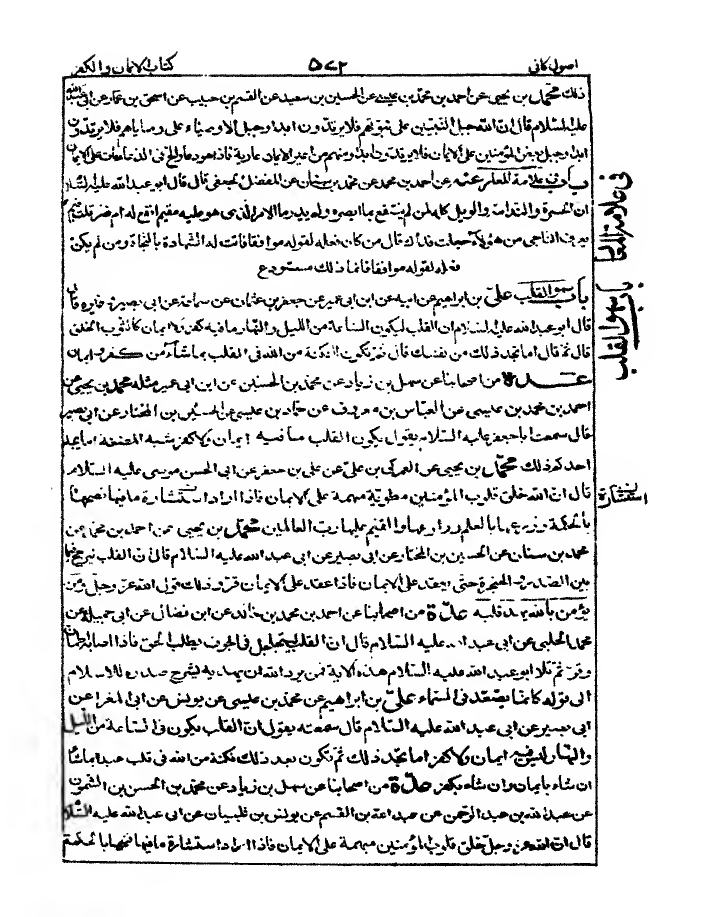 اصول کافی ۵۷۲ کتاب الایمان والکفر
ذلک محمد بن یحیی عن احمد بن محمد بن عیسی عن الحسین بن سعید عن القسم بن حبیب عن اسحق بن عمار عن ابی عبدالله
علیه السلام قال ان الله جبل النبیین علی نبوتهم فلا یرتدون ابدا وجبل الاوصیاء علی وصایاهم فلا یرتدون
ابدا وجبل بعض المؤمنین علی الایمان فلا یرتدون ابدا ومنهم من اعیر الایمان عاریة فاذا هو دعا والح فی الدعاء مات علی الایمان
باب فی علامة المعار عنه عن احمد بن محمد عن محمد بن سنان عن المفضل الجعفی قال قال ابو عبد الله علیه السلام
ان الحسرة والندامة والویل کله لمن لم ینتفع بما ابصره ولم یدر ما الامر الذی هو علیه مقیم انفع له ام ضر قلت فبم
یعرف الناجی من هؤلاء جعلت فداک قال من کان فعله لقوله موافقا فاثبت له الشهادة بالنجاة ومن لم یکن
فعله لقوله موافقا فانما ذلک مستودع
باب سهو القلب علی بن ابراهیم عن ابیه عن ابن ابی عمیر عن جعفر بن عثمان عن سماعة عن ابی بصیر وغیره قال
قال ابو عبد الله علیه السلام ان القلب لیکون الساعة من اللیل والنهار ما فیه کفر ولا ایمان کالثوب الخلق
قال ثم قال اما تجد ذلک من نفسک قال ثم تکون النکتة من الله فی القلب بما شاء من کفر وایمان
عدة من اصحابنا عن سهل بن زیاد عن محمد بن الحسین عن ابن ابی عمیر مثله محمد بن یحیی عن
احمد بن محمد بن عیسی عن العباس بن معروف عن حماد بن عیسی عن الحسین بن المختار عن ابی بصیر
قال سمعت ابا جعفر علیه السلام یقول یکون القلب ما فیه ایمان ولا کفر شبه المضغة اما یجد
احدکم ذلک محمد بن یحیی عن العمرکی بن علی عن علی بن جعفر عن ابی الحسن موسی علیه السلام
قال ان الله خلق قلوب المؤمنین مطویة مبهمة علی الایمان فاذا اراد استشارة ما فیها نضحها
بالحکمة وزرعها بالعلم وزارعها والقیم علیها رب العالمین محمد بن یحیی عن احمد بن محمد عن
محمد بن سنان عن الحسین بن المختار عن ابی بصیر عن ابی عبد الله علیه السلام قال ان القلب لیرجج فیما
بین الصدر والحنجرة حتی یعقد علی الایمان فاذا عقد علی الایمان قر وذلک قول الله عز وجل ومن
یؤمن بالله یهد قلبه عدة من اصحابنا عن احمد بن محمد بن خالد عن ابن فضال عن ابی جمیلة عن
محمد الحلبی عن ابی عبد الله علیه السلام قال ان القلب لیتجلجل فی الجوف یطلب الحق فاذا اصابه اطمان
وقر ثم تلا ابو عبد الله علیه السلام هذه الآیة فمن یرد الله ان یهدیه یشرح صدره للاسلام
الی قوله کانما یصعد فی السماء علی بن ابراهیم عن محمد بن عیسی عن یونس عن ابی المغرا عن
ابی بصیر عن ابی عبد الله علیه السلام قال سمعته یقول ان القلب یکون فی الساعة من اللیل
والنهار لیس فیه ایمان ولا کفر اما تجد ذلک ثم تکون بعد ذلک نکتة من الله فی قلب عبده بما شاء
ان شاء بایمان وان شاء بکفر عدة من اصحابنا عن سهل بن زیاد عن محمد بن الحسن بن الشمون
عن عبد الله بن عبد الرحمن عن عبد الله بن القسم عن یونس بن ظبیان عن ابی عبد الله علیه السلام
قال ان الله عز وجل خلق قلوب المؤمنین مبهمة علی الایمان فاذا اراد استشارة ما فیها فتحها بالحکمة
فی علامة المعار
باب سهو القلب
استشارة